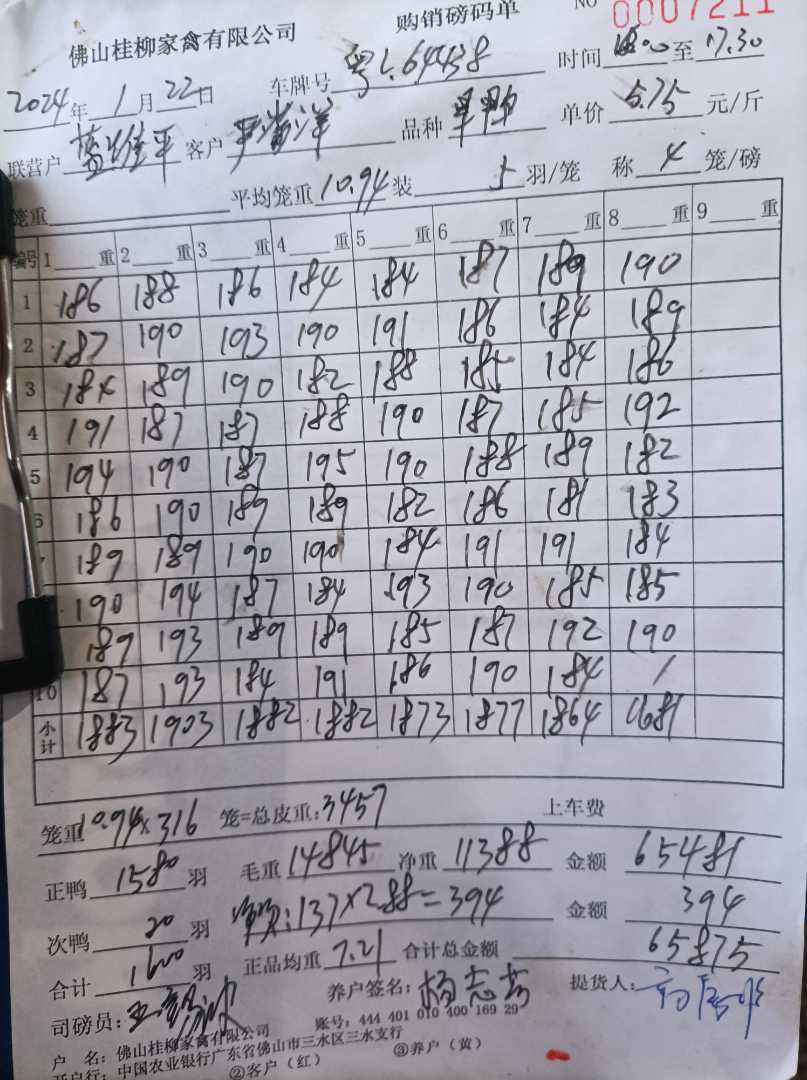 购销磅码单 NO 0007211
佛山桂柳家禽有限公司
2024年1月22日 车牌号 粤L.64438 时间 16:00 至 17.30
联营户 客户 品种 单价 5.75 元/斤
笼重 平均笼重 10.94 装 5 羽/笼 称 4 笼/磅
编号 1 重 2 重 3 重 4 重 5 重 6 重 7 重 8 重 9 重
1 186 188 186 184 184 187 189 190
2 187 190 193 190 191 186 184 189
3 184 189 190 182 188 185 184 186
4 191 187 187 188 190 187 185 192
5 194 190 187 195 190 188 189 182
6 186 190 189 189 182 186 181 183
189 189 190 190 184 191 191 184
190 194 187 184 193 190 185 185
189 193 189 189 185 187 192 190
10 187 193 184 191 186 190 184 /
小计 1883 1903 1882 1882 1873 1877 1864 1681
笼重 10.94×316 笼=总皮重: 3457 上车费
正鸭 1580 羽 毛重 14845 净重 11388 金额 65481
次鸭 20 羽 :137×2.88=394 金额 394
合计 1600 羽 正品均重 7.21 合计总金额 65875
司磅员: 养户签名: 提货人:
户 名: 佛山桂柳家禽有限公司 账号: 444 401 010 400 169 29
开户行: 中国农业银行广东省佛山市三水区三水支行
②客户（红） ③养户（黄）